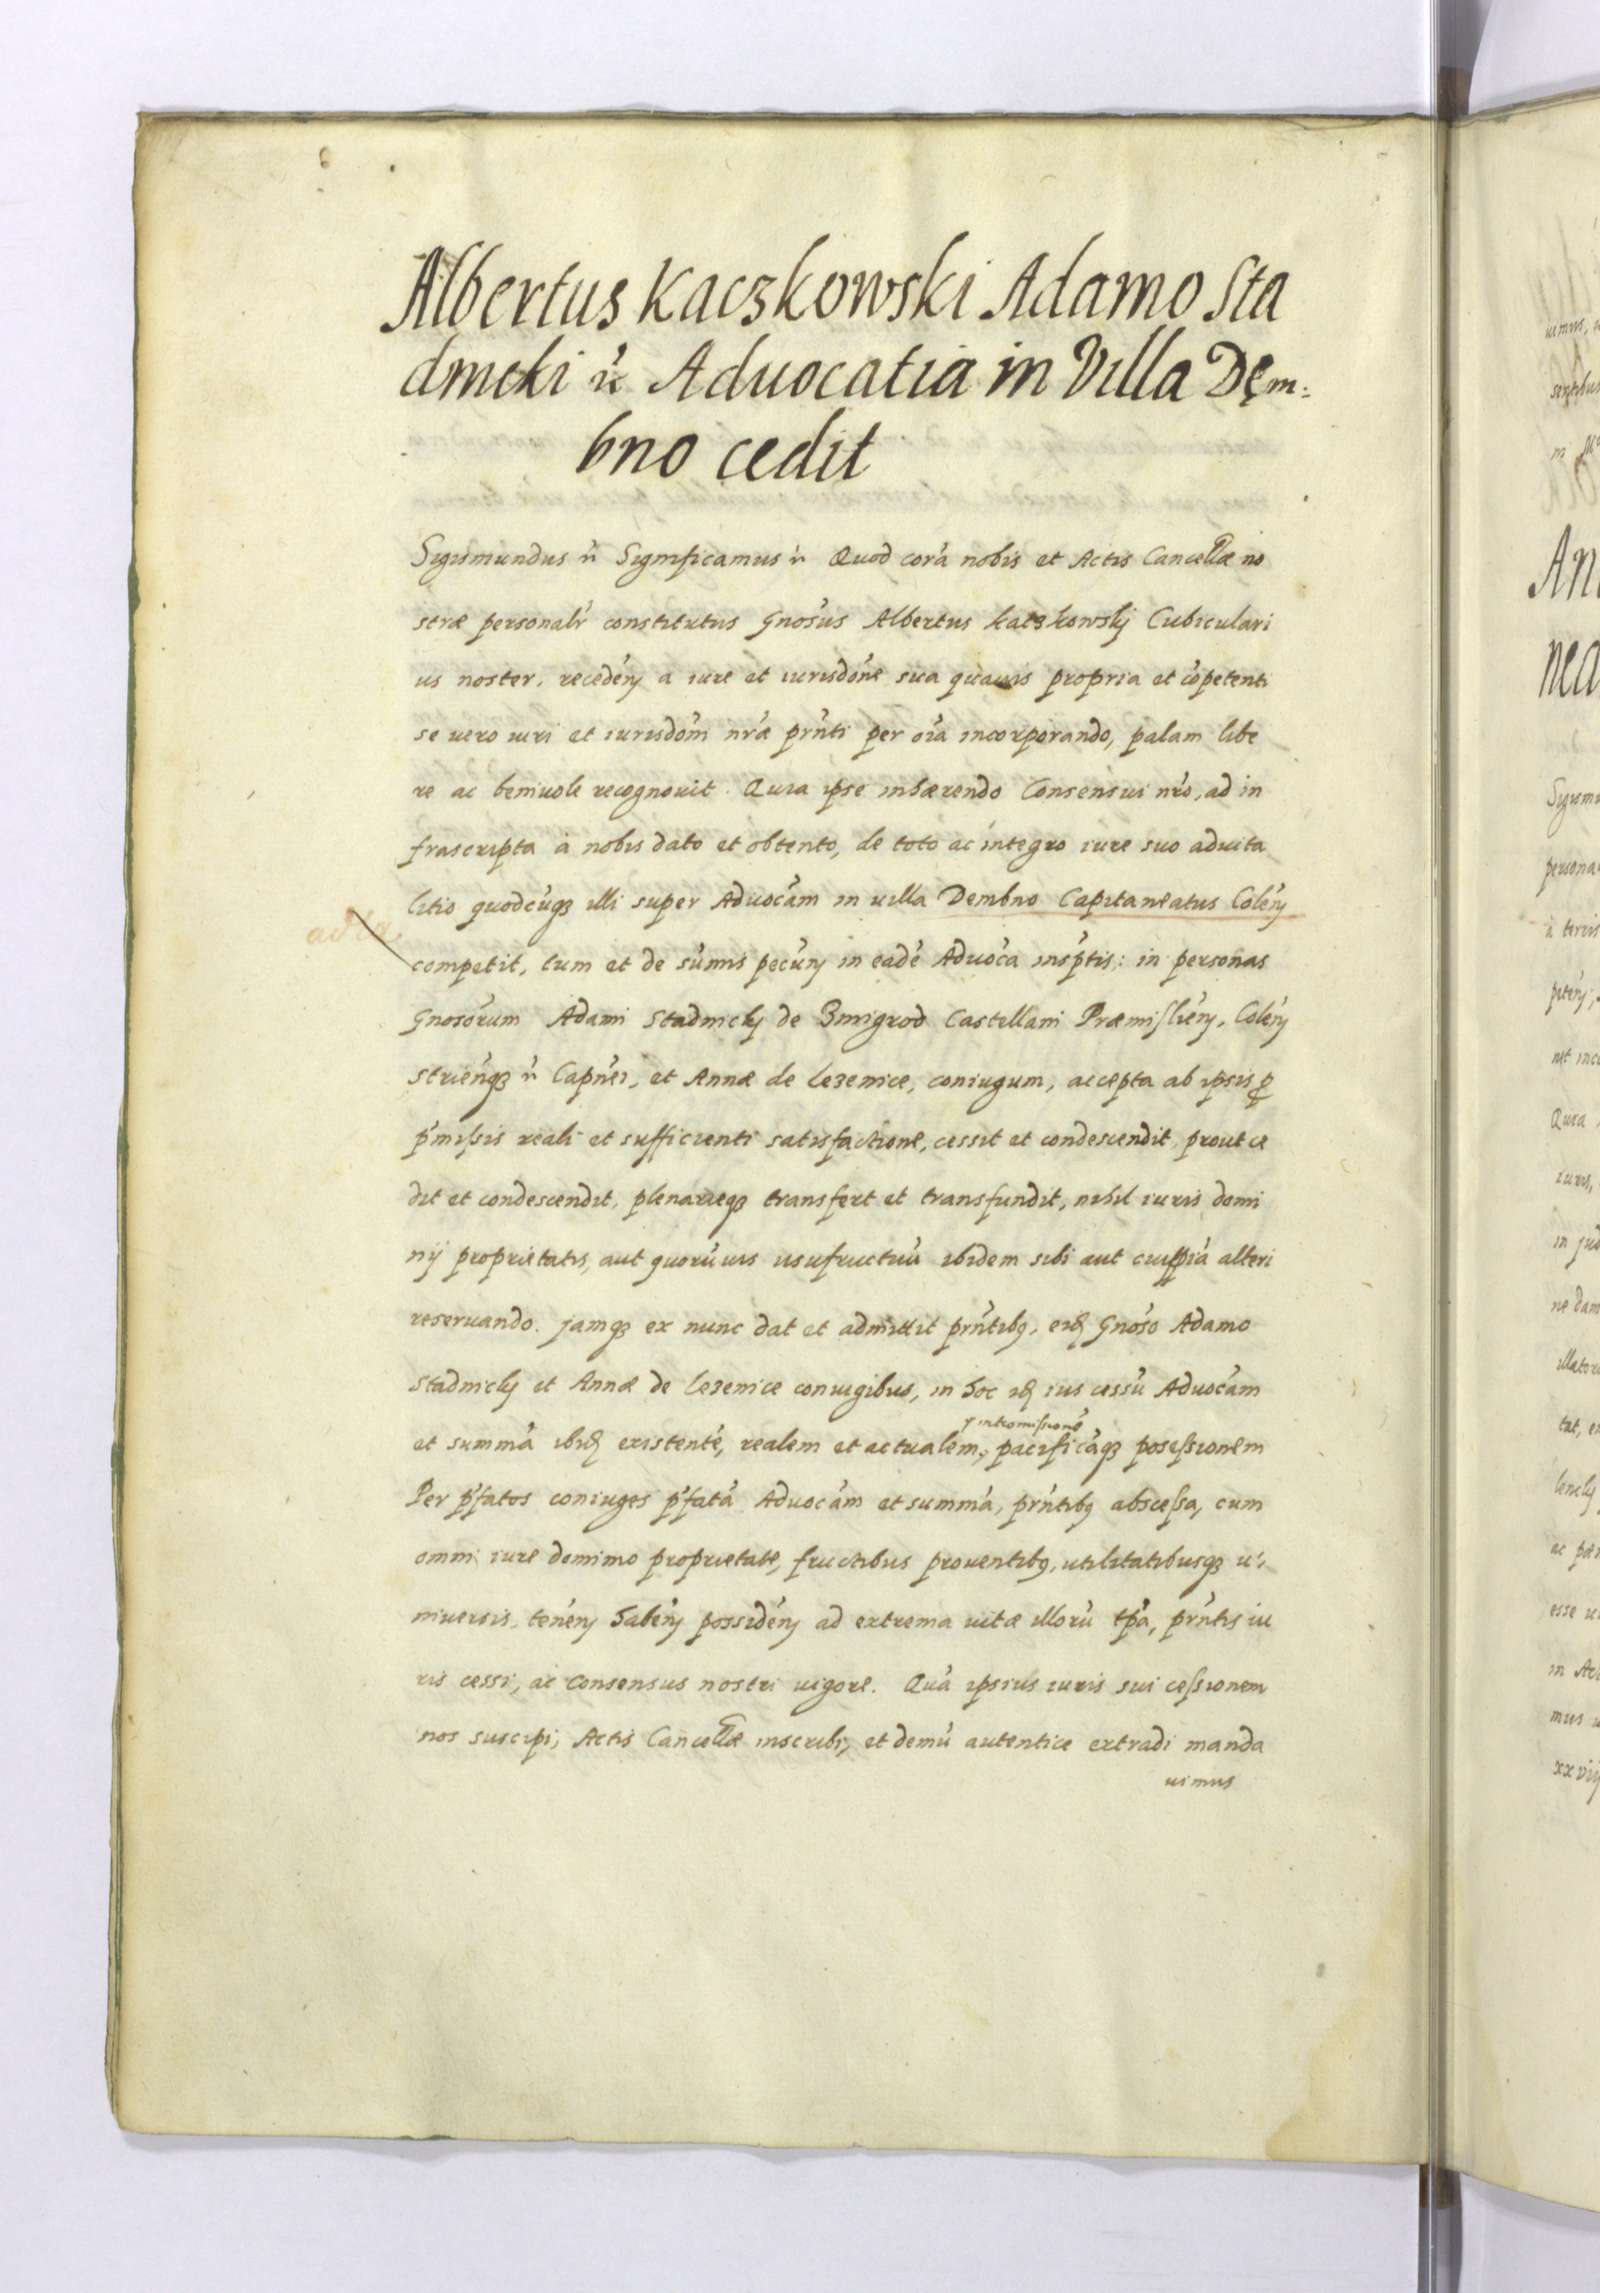 Albertus Kaczkowski Adamo Sta
dnicki etc Aduocatia in Villa Dęm-
bno cedit
Sigismundus etc Significamus etc Quod corã nobis et Actis Cancellæ no
stræ personalr constitutus Gnosus Albertus Kaczkowskj Cubiculari
us noster, recedens a iure et iurisdone sua quauis propria et cõpetenti
se uero iuri et iurisdoni nræ prnti per oia incorporando, palam libe
re ac beniuole recognouit. Quia ipse inhærendo Consensui nro, ad in
frascripta à nobis dato et obtento, de toto ac integro iure suo aduita
litio quodcũqz illi super Aduocam in uilla Dembno Capitaneatus Colens
competit, tum et de sũmis pecuns in eadẽ Aduoca insptis: in personas
Gnosorum Adami Stadnickj de Zmigrod Castellani Præmislien, Colens
Striensqz etc Capnei, et Annæ de Lezenice, coniugum, accepta ab ipsis p
pmissis reali et sufficienti satisfactione, cessit et condescendit, prout ce
dit et condescendit, plenarieqz transfert et transfundit, nihil iuris domi
nij proprietatis, aut quorũuis usufructuũ ibidem sibi aut cuipiã alteri
reseruando. jamqz ex nunc dat et admittit prntibq, eisd Gnoso Adamo
Stadnickj et Annæ de Lezenice coniugibus, in hoc id ius cessũ Aduocam
y intromissionẽ
et summã ibid existentẽ, realem et actualem, pacificãqz possessionem
Per pfatos coniuges pfatã Aduocam et summã, prntibq abscessa, cum
omni iure dominio proprietate, fructibus prouentibq, utilitatibusqz u-
niuersis, tenens habens possidens ad extrema uitæ illorũ tpa, prntis iu
ris cessi, ac consensus nostri uigore. Quã ipsius iuris sui cessionem
nos suscipi, Actis Cancellæ inscribi, et demũ autentice extradi manda
uimus